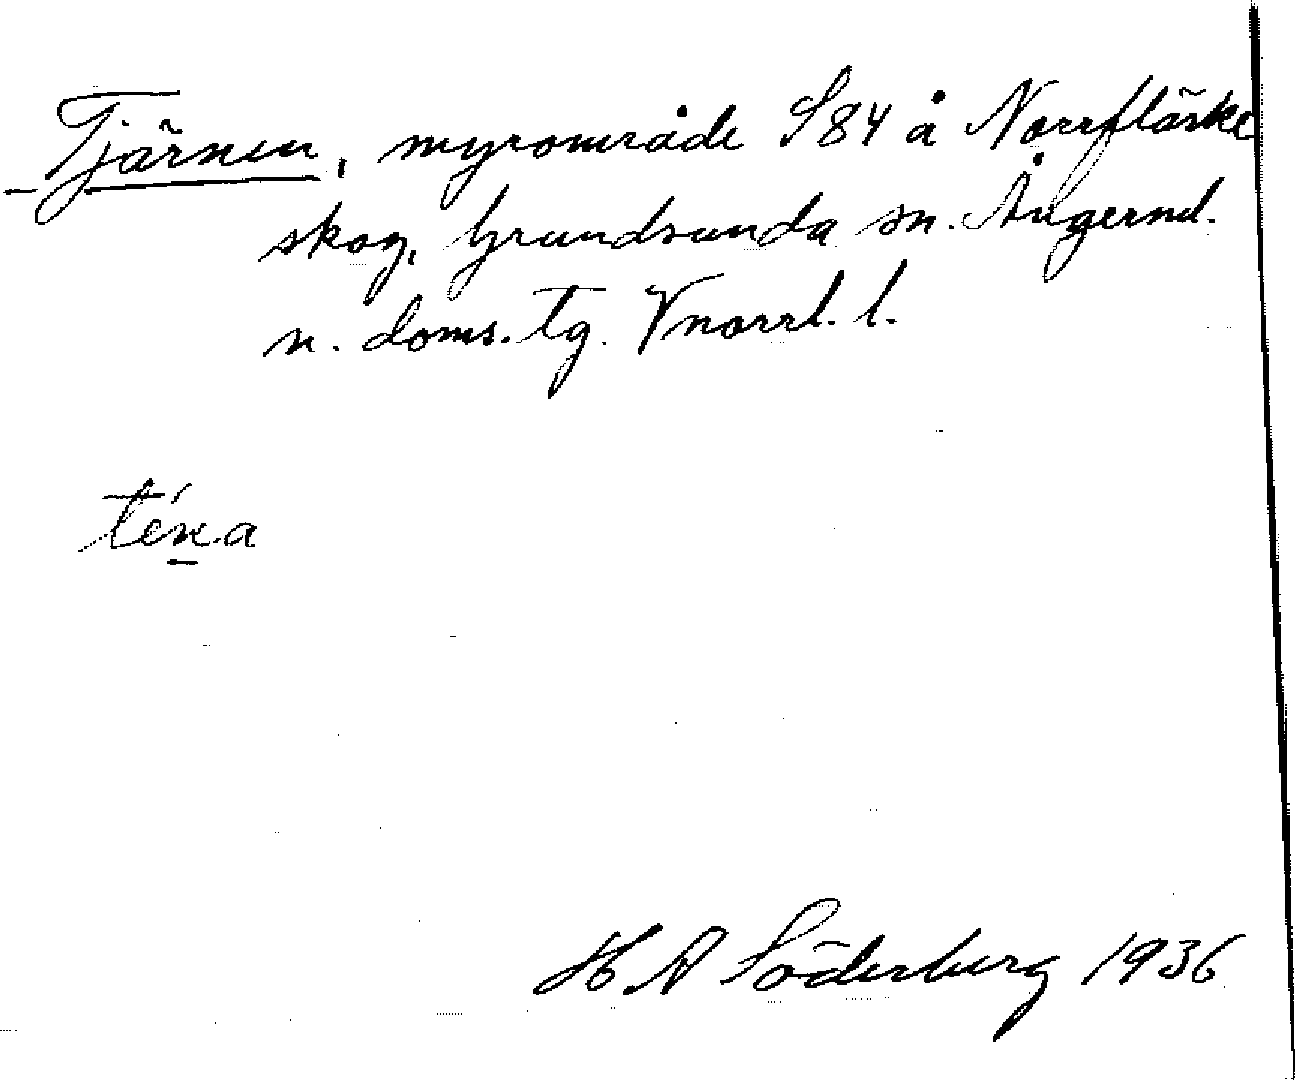 Tjärnen, myrområde S84 å Norrfläske
skog, Grundsunda sn. Ångerml.
n. doms. tg. Vnorrl. l.
téna
H A Söderberg 1936